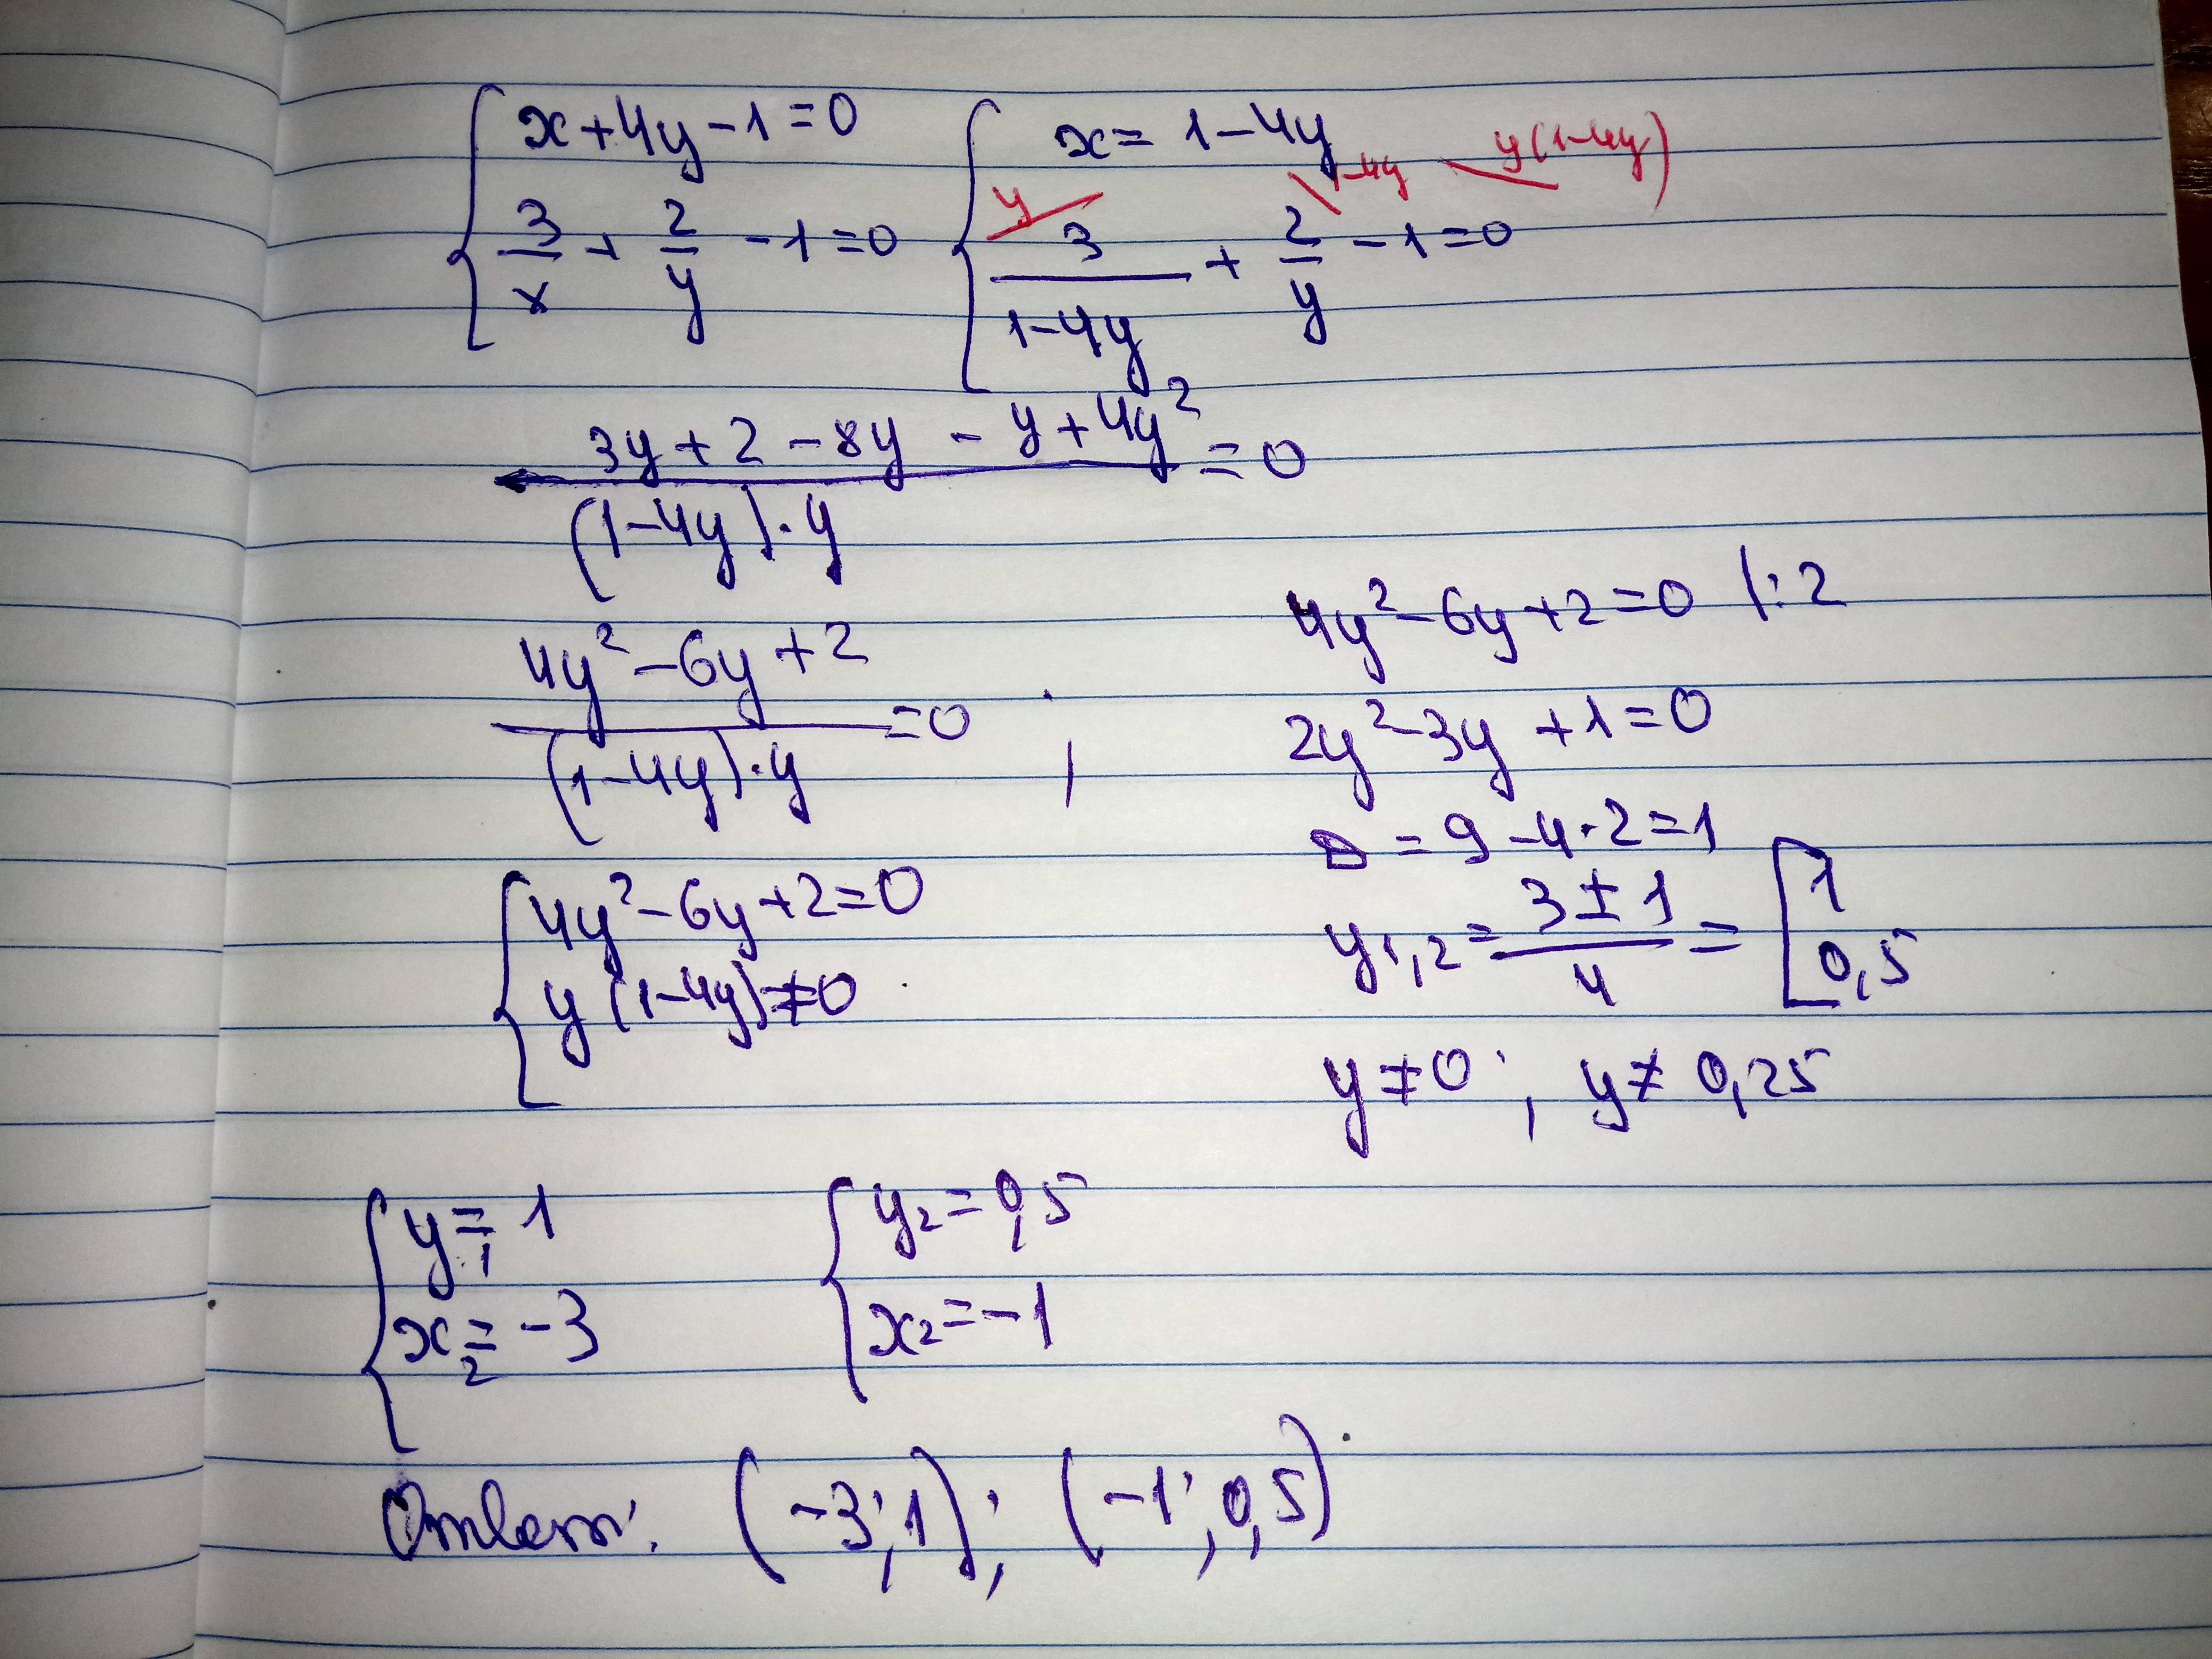 { x+4y-1=0 { x=1-4y
3/x + 2/y - 1=0 y 3/(1-4y) + -4y 2/y - 1=0 y(1-4y)
(3y+2-8y-y+4y²)/((1-4y)·y) =0
(4y²-6y+2)/((1-4y)·y) =0 ;
{ 4y²-6y+2=0
y(1-4y)≠0
4y²-6y+2=0 |:2
2y²-3y+1=0
D=9-4·2=1
y1,2=(3±1)/4=[ 1
0,5
y≠0; y≠0,25
{ y₁=1 { y2=0,5
x₂=-3 x2=-1
Ответ: (-3;1); (-1;0,5)